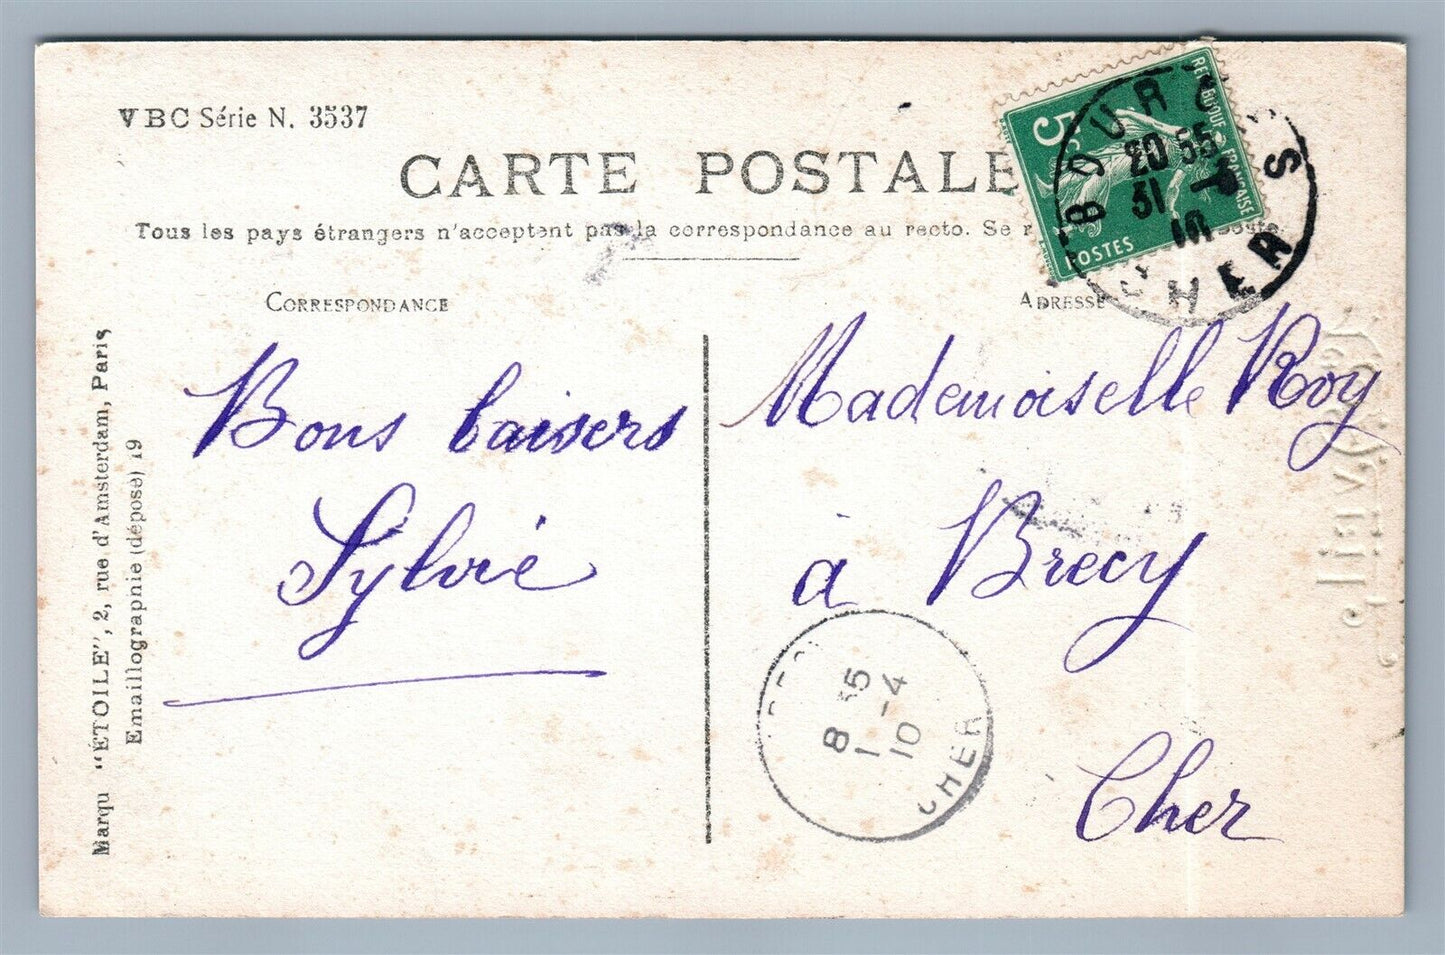 VBC Série N. 3537
CARTE POSTALE
Tous les pays étrangers n'acceptent pas la correspondance au recto. Se
CORRESPONDANCE
ADRESSE
Marqu "ÉTOILE", 2, rue d'Amsterdam, Paris
Emaillographie (déposé) 19
5c
REPUBLIQUE FRANÇAISE
POSTES
BOURGES
20 55
31
10
CHER
Bons baisers
Sylvie
Mademoiselle Roy
à Brecy
Cher
8 35
1-4
10
CHER